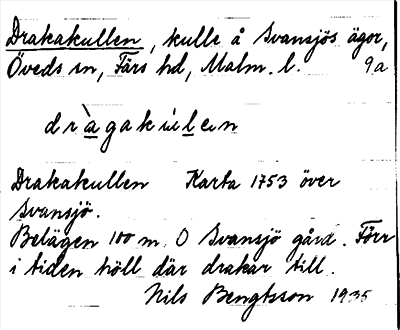 Drakakullen, kulle å Svansjös ägor,
Öveds sn, Färs hd, Malm. l. 9a
dràgakùlen
Drakakullen Karta 1753 över
Svansjö.
Belägen 100 m. O Svansjö gård. Förr
i tiden höll där drakar till.
Nils Bengtsson 1935